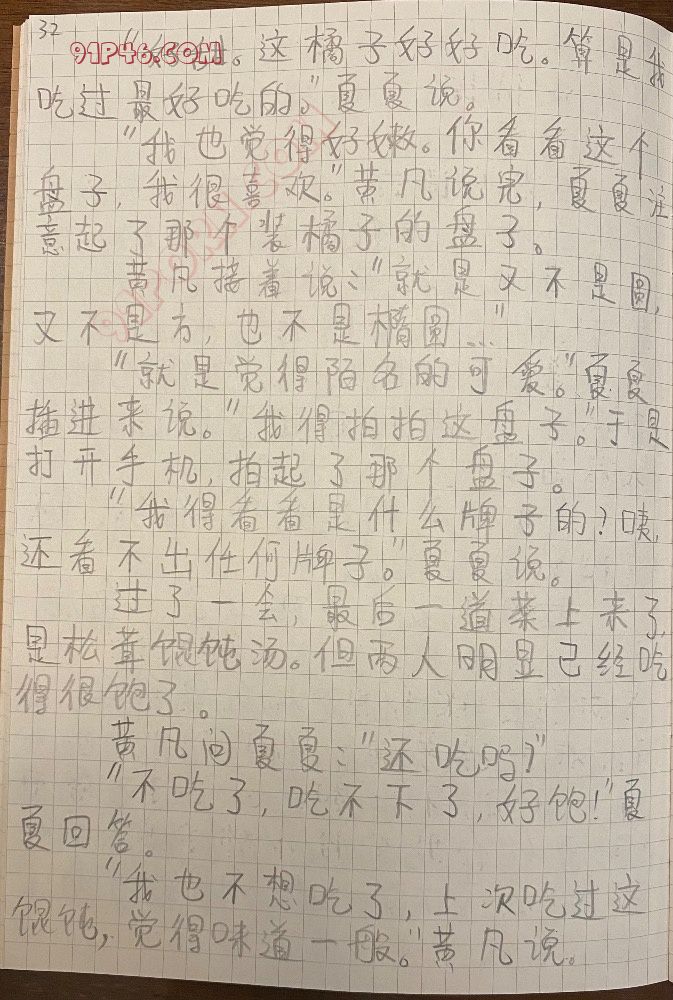 32
91P46.COM
。这橘子好好吃。算是我
吃过最好吃的。"夏夏说。
"我也觉得好嫩。你看看这个
盘子，我很喜欢。"黄凡说完，夏夏注
意起了那个装橘子的盘子。
黄凡接着说："就是又不是圆，
又不是方，也不是椭圆..."
"就是觉得陌名的可爱。"夏夏
插进来说。"我得拍拍这盘子。"于是
打开手机，拍起了那个盘子。
"我得看看是什么牌子的？咦，
还看不出任何牌子。"夏夏说。
过了一会，最后一道菜上来了，
是松茸馄饨汤。但两人明显已经吃
得很饱了。
黄凡问夏夏："还吃吗？"
"不吃了，吃不下了，好饱！"夏
夏回答。
"我也不想吃了，上次吃过这
馄饨，觉得味道一般。"黄凡说。